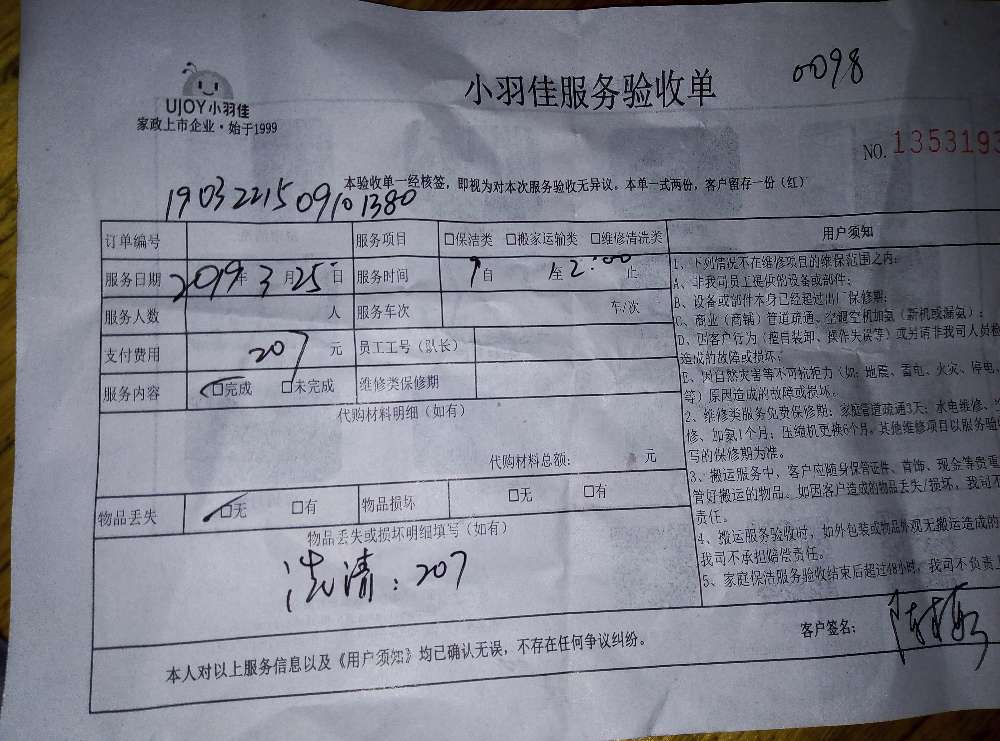 小羽佳服务验收单
0098
UJOY小羽佳
家政上市企业·始于1999
NO. 1353193
本验收单一经核签，即视为对本次服务验收无异议。本单一式两份，客户留存一份（红）
19032215 09101380
订单编号 服务项目 □保洁类 □搬家运输类 □维修清洗类
服务日期 2019年 3月 25日 服务时间 自 至 2:00 止
服务人数 人 服务车次 车/次
支付费用 207 元 员工工号（队长）
服务内容 □完成 □未完成 维修类保修期
代购材料明细（如有）
代购材料总额： 元
物品丢失 □无 □有 物品损坏 □无 □有
物品丢失或损坏明细填写（如有）
洗清：207
本人对以上服务信息以及《用户须知》均已确认无误，不存在任何争议纠纷。
客户签名：
用户须知
1、下列情况不在维修项目的维保范围之内：
A、非我司员工提供的设备或部件；
B、设备或部件本身已经超过出厂保修期；
C、商业（商铺）管道疏通、空调空机加氨（新机或漏氨）；
D、因客户行为（擅自装卸、操作失误等）或另请非我司人员
造成的故障或损坏；
E、因自然灾害等不可抗拒力（如：地震、蓄电、火灾、停电、
等）原因造成的故障或损坏。
2、维修类服务免费保修期：家庭管道疏通3天；水电维修、
修、加氨1个月；压缩机更换6个月，其他维修项目以服务验
写的保修期为准。
3、搬运服务中，客户应随身保管证件、首饰、现金等贵重
管好搬运的物品。如因客户造成的物品丢失/损坏，我司不
责任。
4、搬运服务验收时，如外包装或物品外观无搬运造成的
我司不承担赔偿责任。
5、家庭保洁服务验收结束后超过48小时，我司不负责